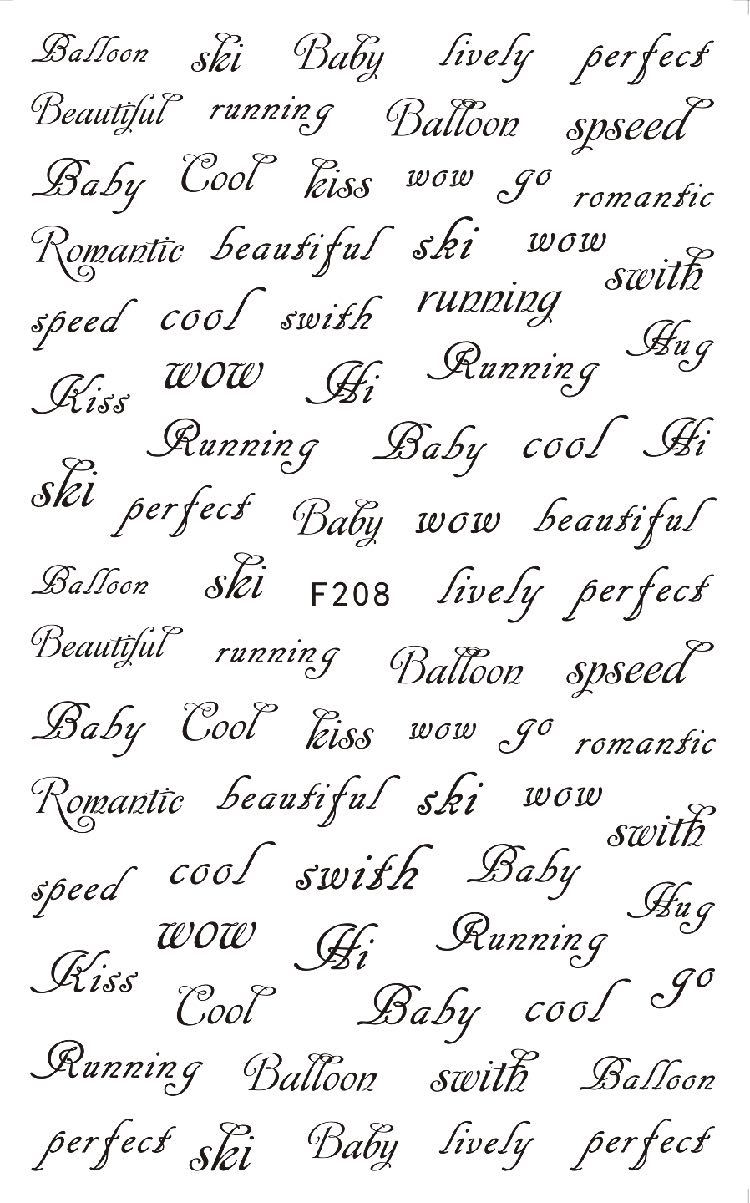 Balloon ski Baby lively perfect
Beautiful running Balloon spseed
Baby Cool kiss wow go romantic
Romantic beautiful ski wow swith
speed cool swith running Hug
Kiss wow Hi Running
Running Baby cool Hi
ski perfect Baby wow beautiful
Balloon ski F208 lively perfect
Beautiful running Balloon spseed
Baby Cool kiss wow go romantic
Romantic beautiful ski wow swith
speed cool swith Baby Hug
Kiss wow Hi Running
Cool Baby cool go
Running Balloon swith Balloon
perfect ski Baby lively perfect